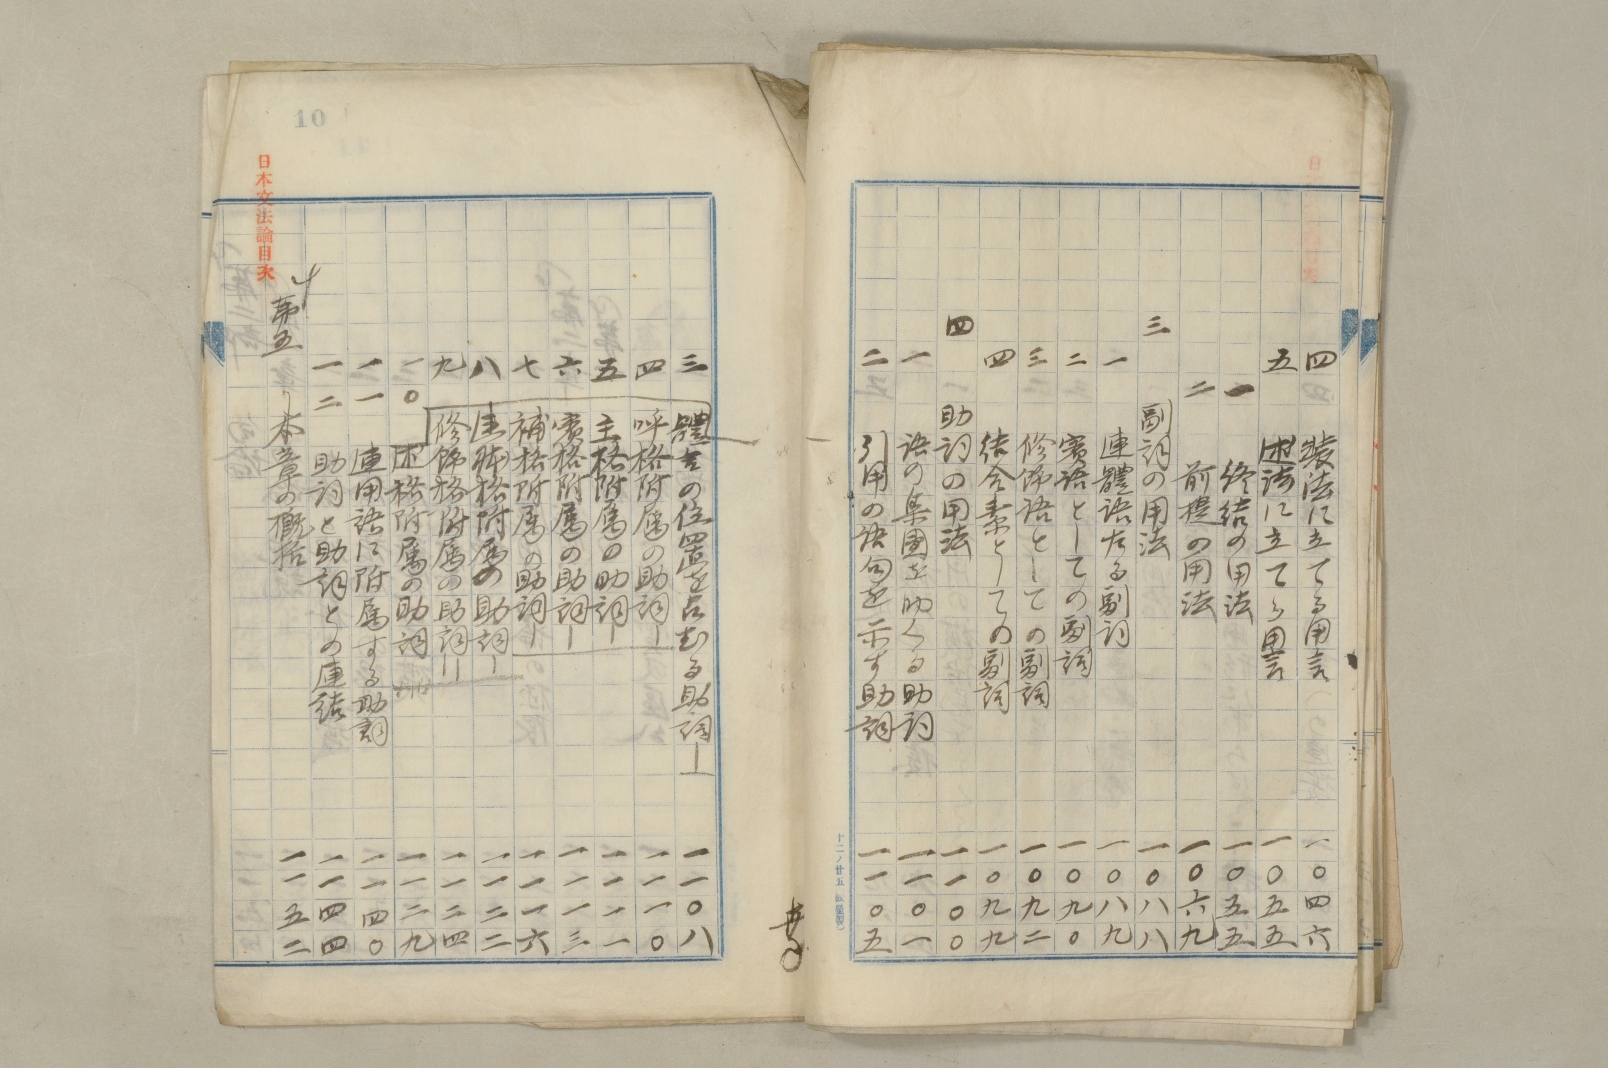 四 装法に立てる用言 一〇四六
五 述法に立てる用言 一〇五五
一 終結の用法 一〇五五
二 前提の用法 一〇六九
三 副詞の用法 一〇八八
一 連體語たる副詞 一〇八九
二 賓語としての副詞 一〇九〇
三 修飾語としての副詞 一〇九二
四 結合素としての副詞 一〇九九
四 助詞の用法 一一〇〇
一 語の集團を助くる助詞 一一〇一
二 引用の語句を示す助詞 一一〇五
十二ノ廿五
三 體言の位置を占むる助詞 一一〇八
四 呼格附属の助詞 一一一〇
五 主格附属の助詞 一一一一
六 賓格附属の助詞 一一一三
七 補格附属の助詞 一一一六
八 連體格附属の助詞 一一二二
九 修飾格附属の助詞 一一二四
一〇 述格附属の助詞 一一二九
一一 連用語に附属する助詞 一一四〇
一二 助詞と助詞との連結 一一四四
第五 本章の概括 一一五二
日本文法論目次
10